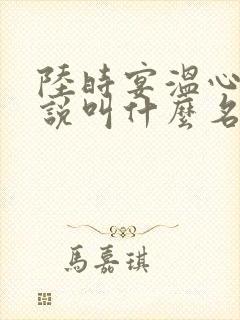 陸時宴溫心
說叫什麼名
馬嘉琪